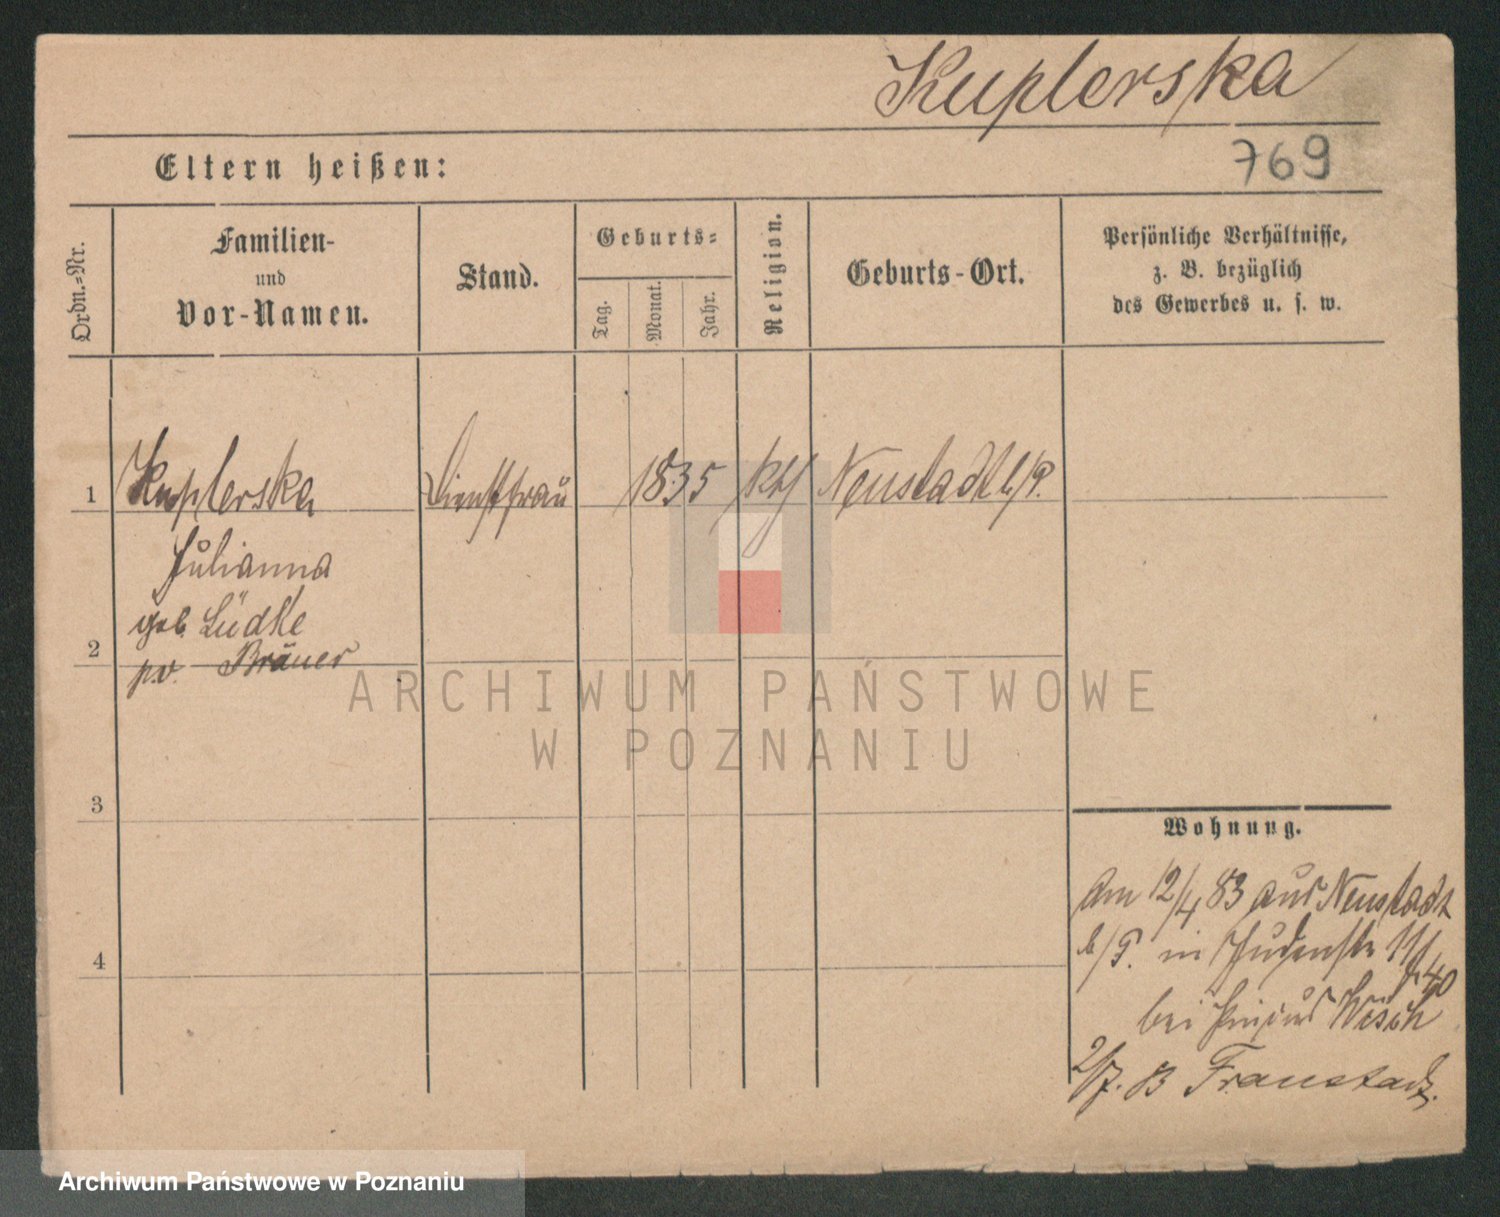 Kuplerska
769
Eltern heißen:
Ordn.=Nr.
Familien-
und
Vor-Namen.
Stand.
Geburts=
Tag.
Monat.
Jahr.
Religion.
Geburts-Ort.
Persönliche Verhältnisse,
z. B. bezüglich
des Gewerbes u. s. w.
1 Kuplerska Dienstfrau 1835 kth Neustadt b/P.
Julianna
geb. Lüdke
2
pv. Bräuer
ARCHIWUM PAŃSTWOWE
W POZNANIU
3
Wohnung.
Am 12/4 83 aus Neustadt
b/P. in Judenstr 11/
4
40
bei
2/7. 83 Fraustadt.
Archiwum Państwowe w Poznaniu